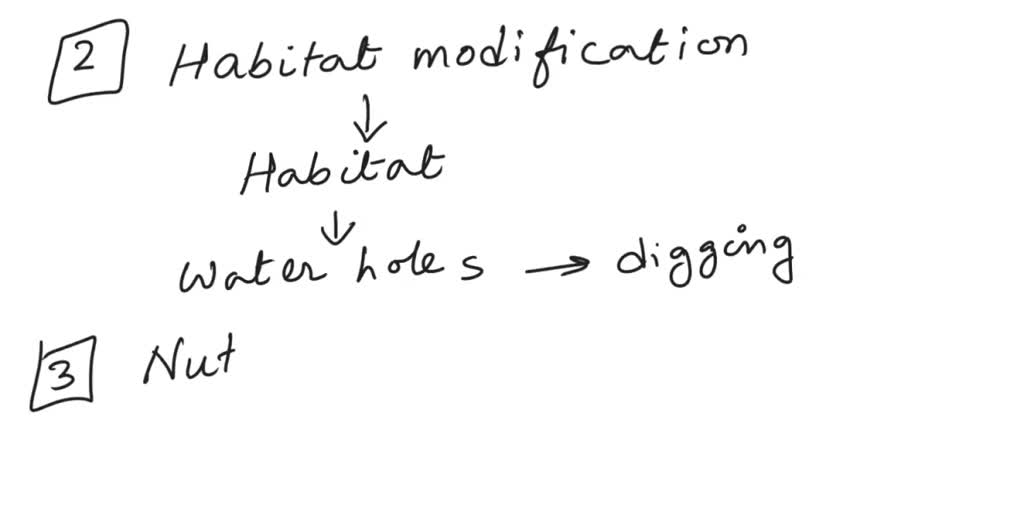 2 Habitat modification
↓
Habitat
↓
water holes → digging
3 Nut